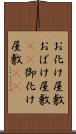 お化け屋敷
おばけ屋敷
御化け
屋敷